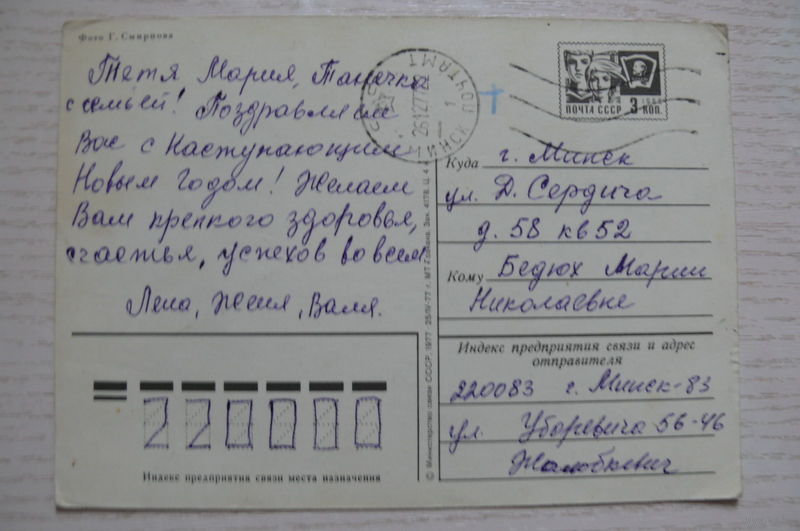 Фото Г. Смирнова
Тетя Мария, Танечка
с семьей! Поздравляем
Вас с Наступающим
Новым Годом! Желаем
Вам крепкого здоровья,
счастья, успехов во всем.
Лена, Женя, Валя.
220000
Индекс предприятия связи места назначения
© Министерство связи СССР, 1977 25/IV-77 г. МТ Гознака. Зак. 4178. Ц. 4
МИНСК ПОЧТАМТ
ПОЧТА СССР 3 КОП.
Куда г. Минск
ул. Д. Сердича
д. 58 кв 52
Кому Бедюх Марии
Николаевне
Индекс предприятия связи и адрес
отправителя
220083 г. Минск-83
ул. Уборевича 56-46
Жалобкевич